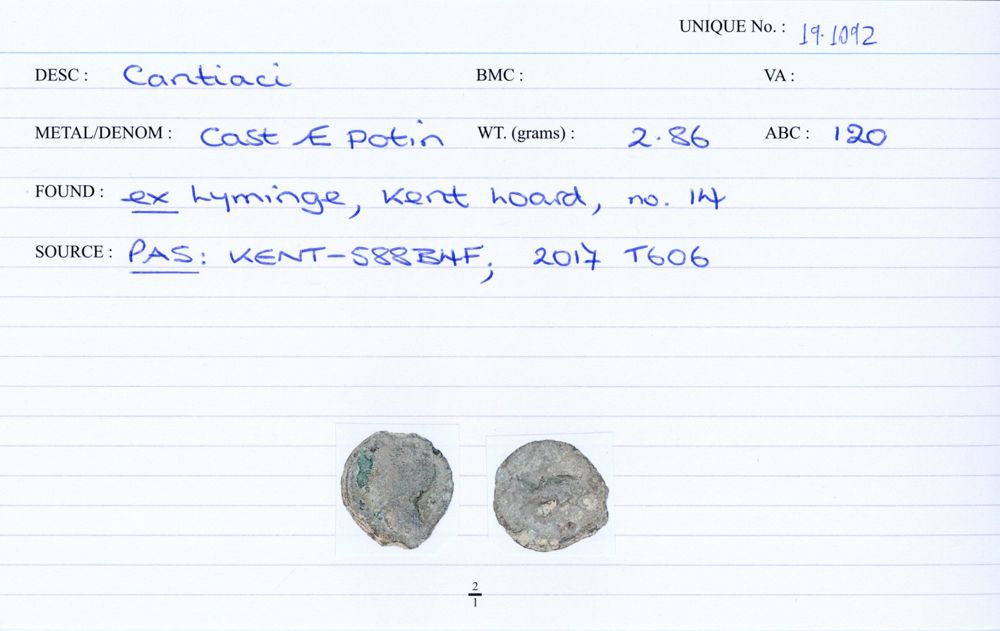 UNIQUE No. : 19.1092
DESC : Cantiaci BMC : VA :
METAL/DENOM : Cast Æ potin WT. (grams) : 2.86 ABC : 120
FOUND : ex Lyminge, Kent hoard, no. 14
SOURCE : PAS: KENT-588B4F; 2017 T606
2
1